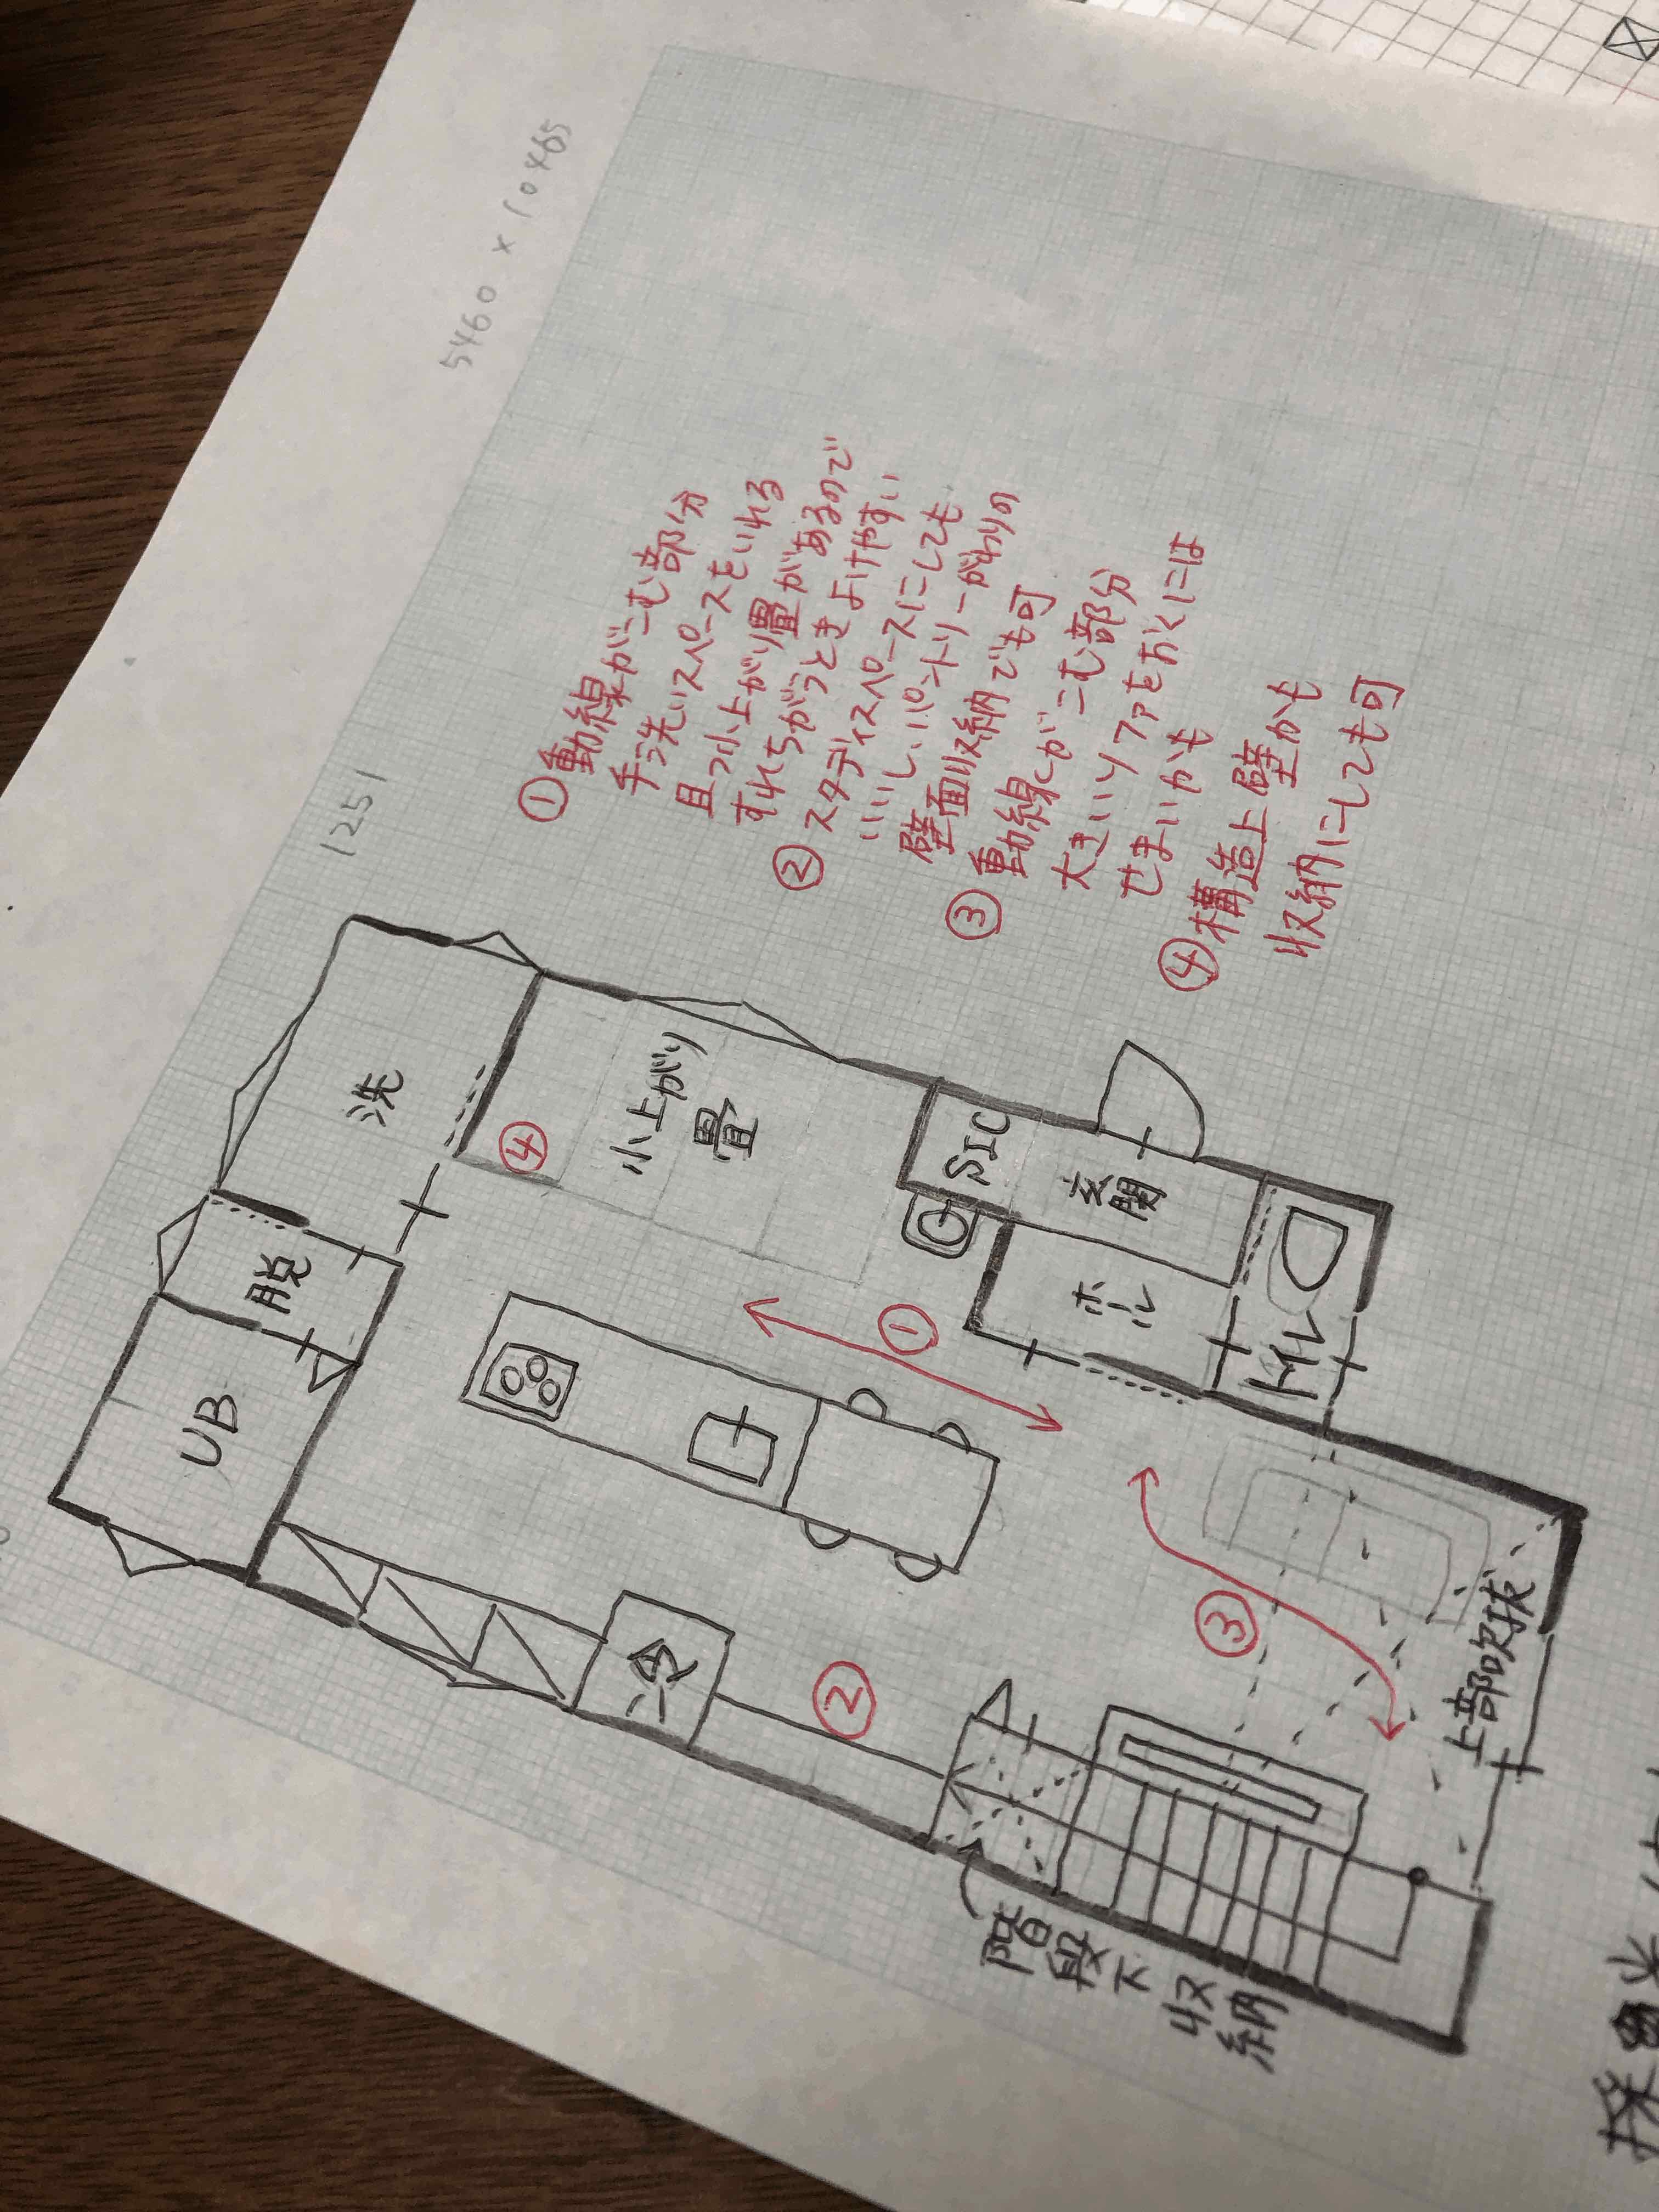 5460 × 10465
1251
①動線がこむ部分
手洗いスペースをいれる
且つ小上がり畳があるので
すれちがうときよけやすい
②スタディスペースにしても
いいし、パントリーがわりの
壁面収納でも可
③動線がこむ部分
大きいソファをおくには
せまいかも
④構造上壁かも
収納にしても可
洗
脱
UB
④
小上がり
畳
SIC
玄関
ホール
①
冷
②
③
上部吹抜
階段下
収納